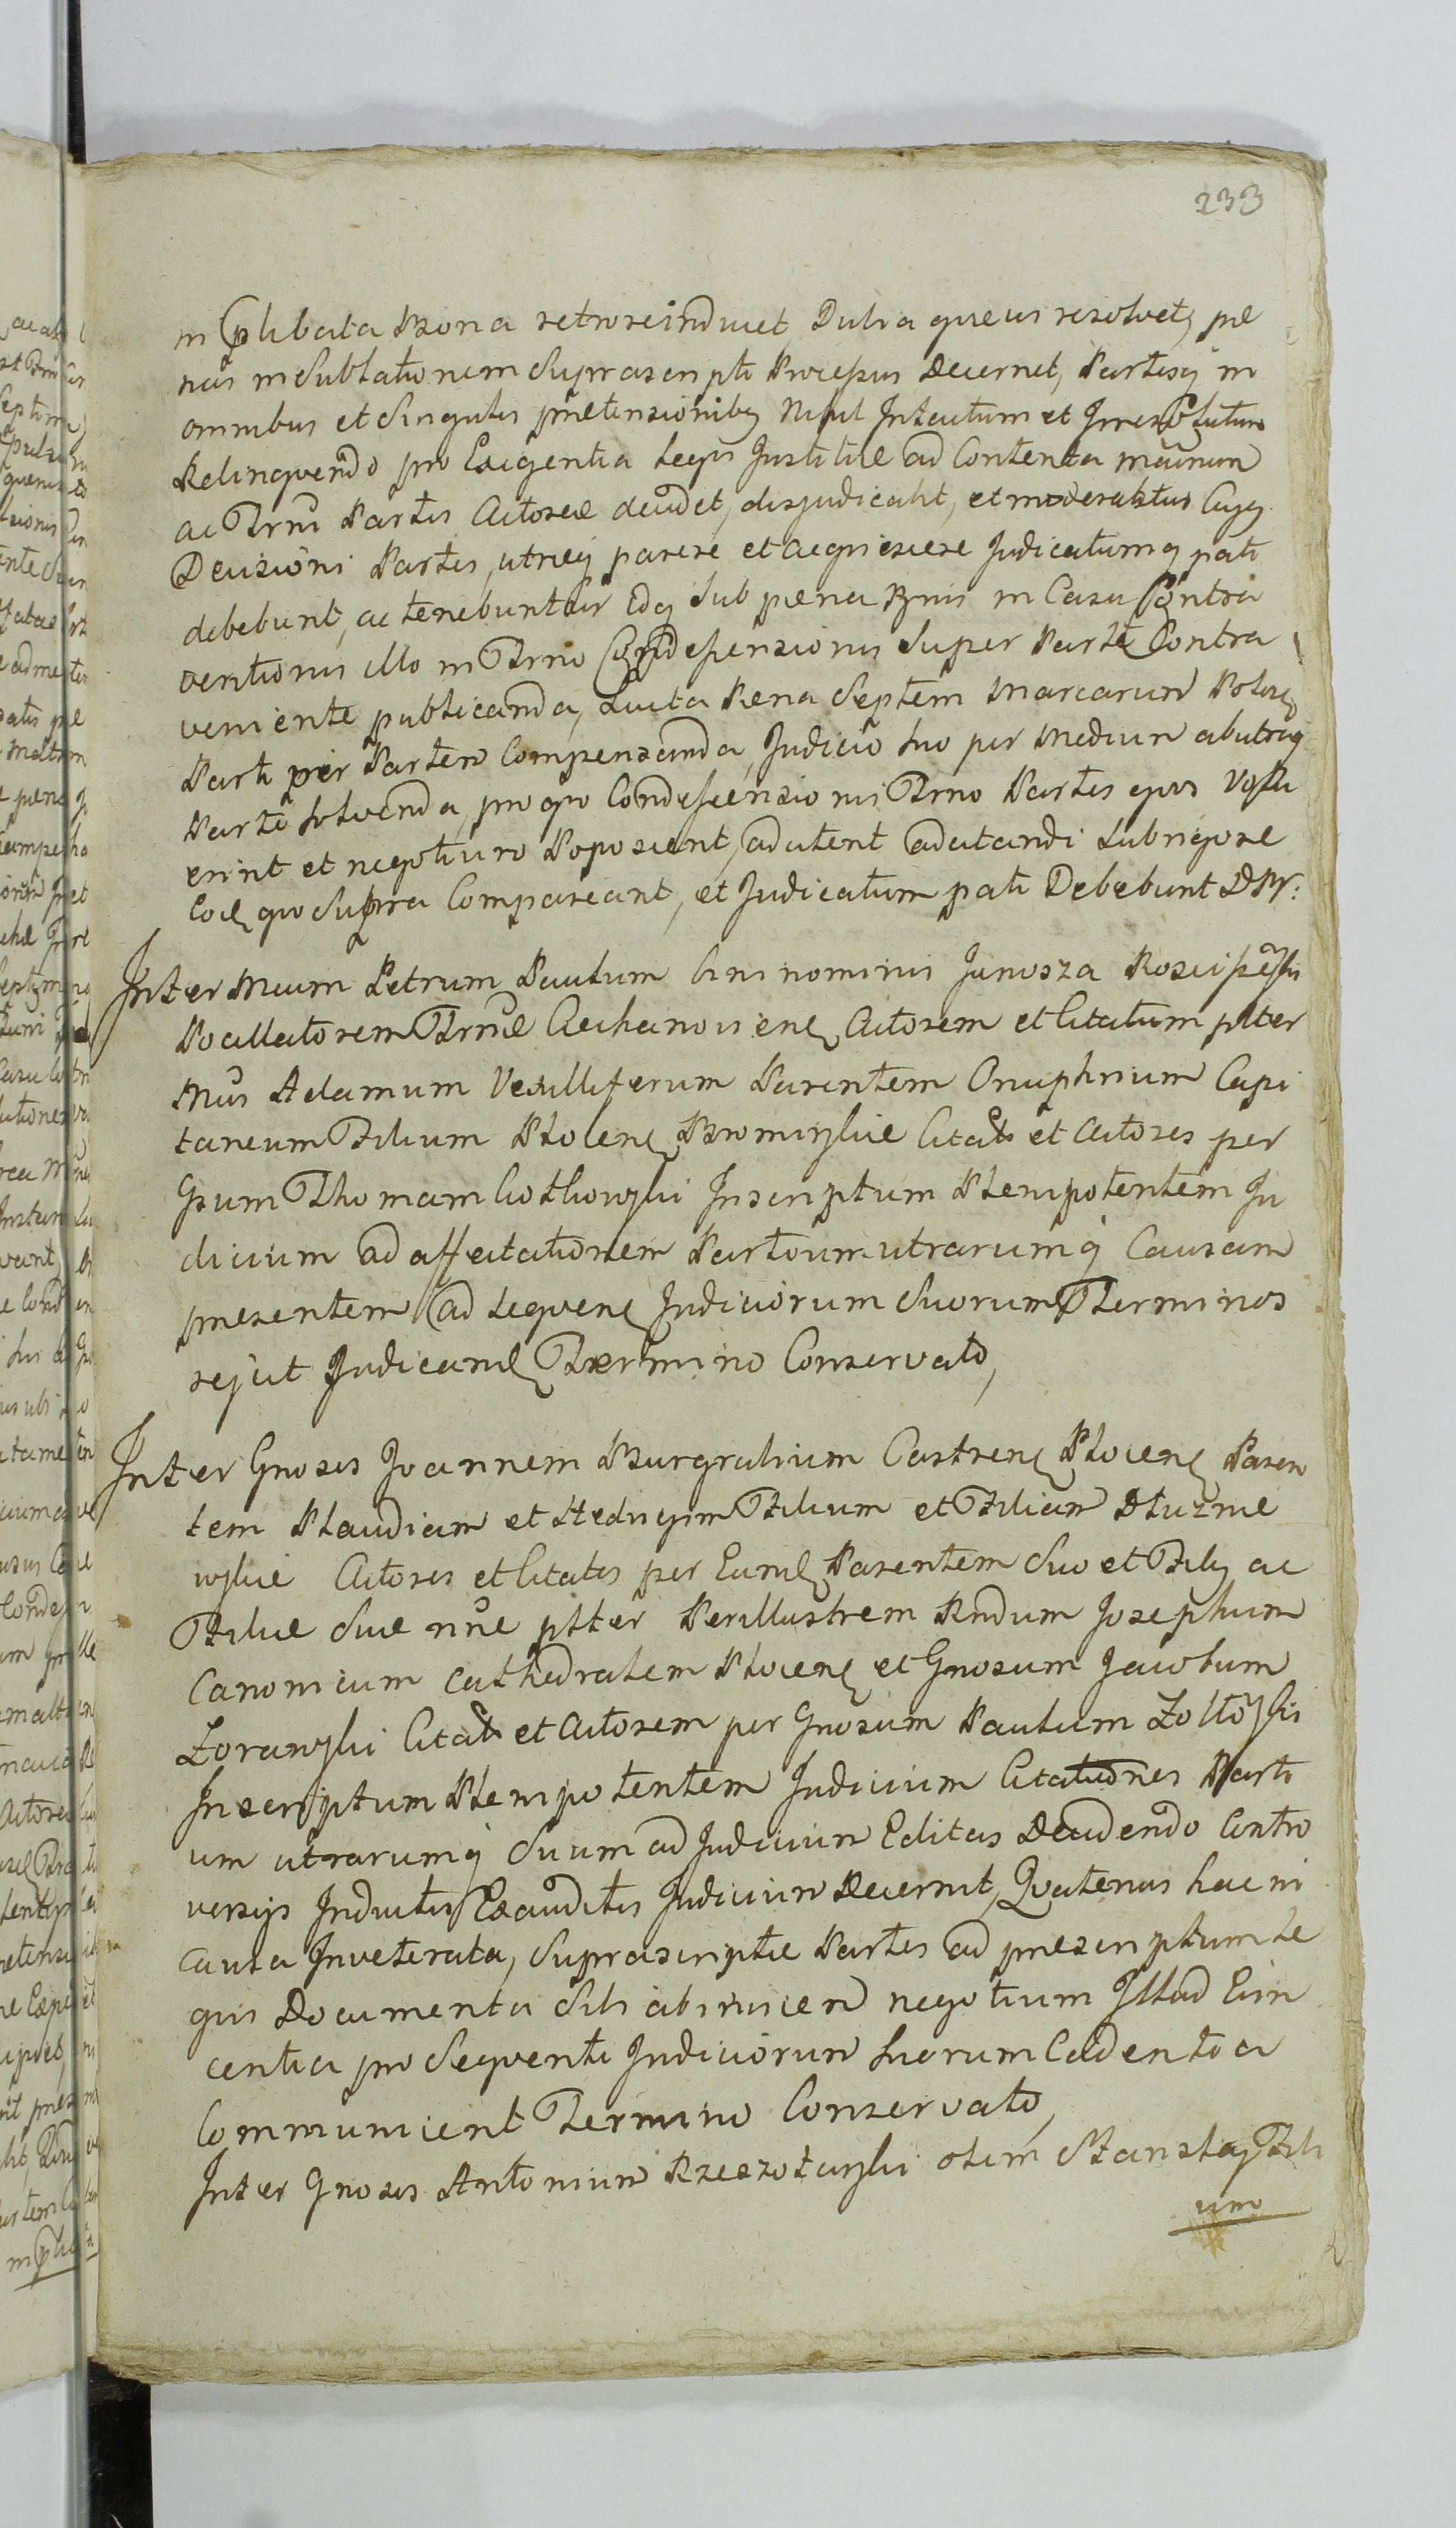 233
in Plibata Bona retroreinducet, Dubia quevis resolvet, pæ
nas in Sublationem Suprascripti Processus Decernet, Partesq in
omnibus et Singulis prætensionibq Nihil Intentum et Irresolutum
Relinquendo pro Exigentia Legis Justitiæ ad Contenta
ac Trni Partis Actoreæ decidet, disjudicabit, et moderabitur Cujq
Decisioni Partes, utræq parere et acquiescere Judicatumq pati
debebunt, ac tenebuntur idq sub pæna Bnis in Casu Contra
ventionis illo in Trno Condescensionis Super Parte Contra
veniente publicanda, Lucta Pæna Septem Marcarum Polon
Parti per Partem Compensanda, Judicio suo per Medium ab utraq
Parte solvenda, pro quo Condescensionis Trno Partes quos
erint et negotium Poposcent, adcitent adcitandi sub rigore
eod quo Supra Compareant, et Judicatum pati Debebunt
Inter Mcum Petrum Paulum bini nominis Junosza Rosciszewski
Pocillatorem Trræ Ciechanoviens Actorem et Citatum plter
Mcos Adamum Vexilliferum Parentem Onuphrium Capi
taneum Filium Plocens Bromirskie Citatos et Actores per
Gsum Thomam Inscriptum Plenipotentem Ju
dicium ad affectationem Partium utrarumq Causam
præsentem ad sequens Judiciorum Suorum Terminos
rejicit Judicand Termino Conservato,
Inter Gnosos Joannem Burgrabium Castrens Plocens Paren
tem Claudiam et Hedvigim Filium et Filiam Dłużnie
wskie Actores et Citatos per Eund Parentem Suo et Filij ac
Filiæ Suæ nne plter Perillustrem Rndum Josephum
Canonicum Cathedralem Plocens et Gnosum Jacobum
Zorawski Citatos et Actorem per Gnosum Paulum Zołtowski
Inscriptum Plenipotentem Judicium Citationes Parti
um utrarumq Suum ad Judicium Editas Decidendo Contro
versijs Inductis Exauditis Judicium Decernit, Quatenus hac in
causa Inveterata, Suprascriptæ Partes ad præscriptum Le
gis Documenta Sibi abinvicem negotium Illud Evin
centia pro Sequenti Judiciorum suorum Cadentia
Communicent Termino Conservato,
Inter Gnosos Antonium Rzeszotarski olim Stanislaj Fili
um